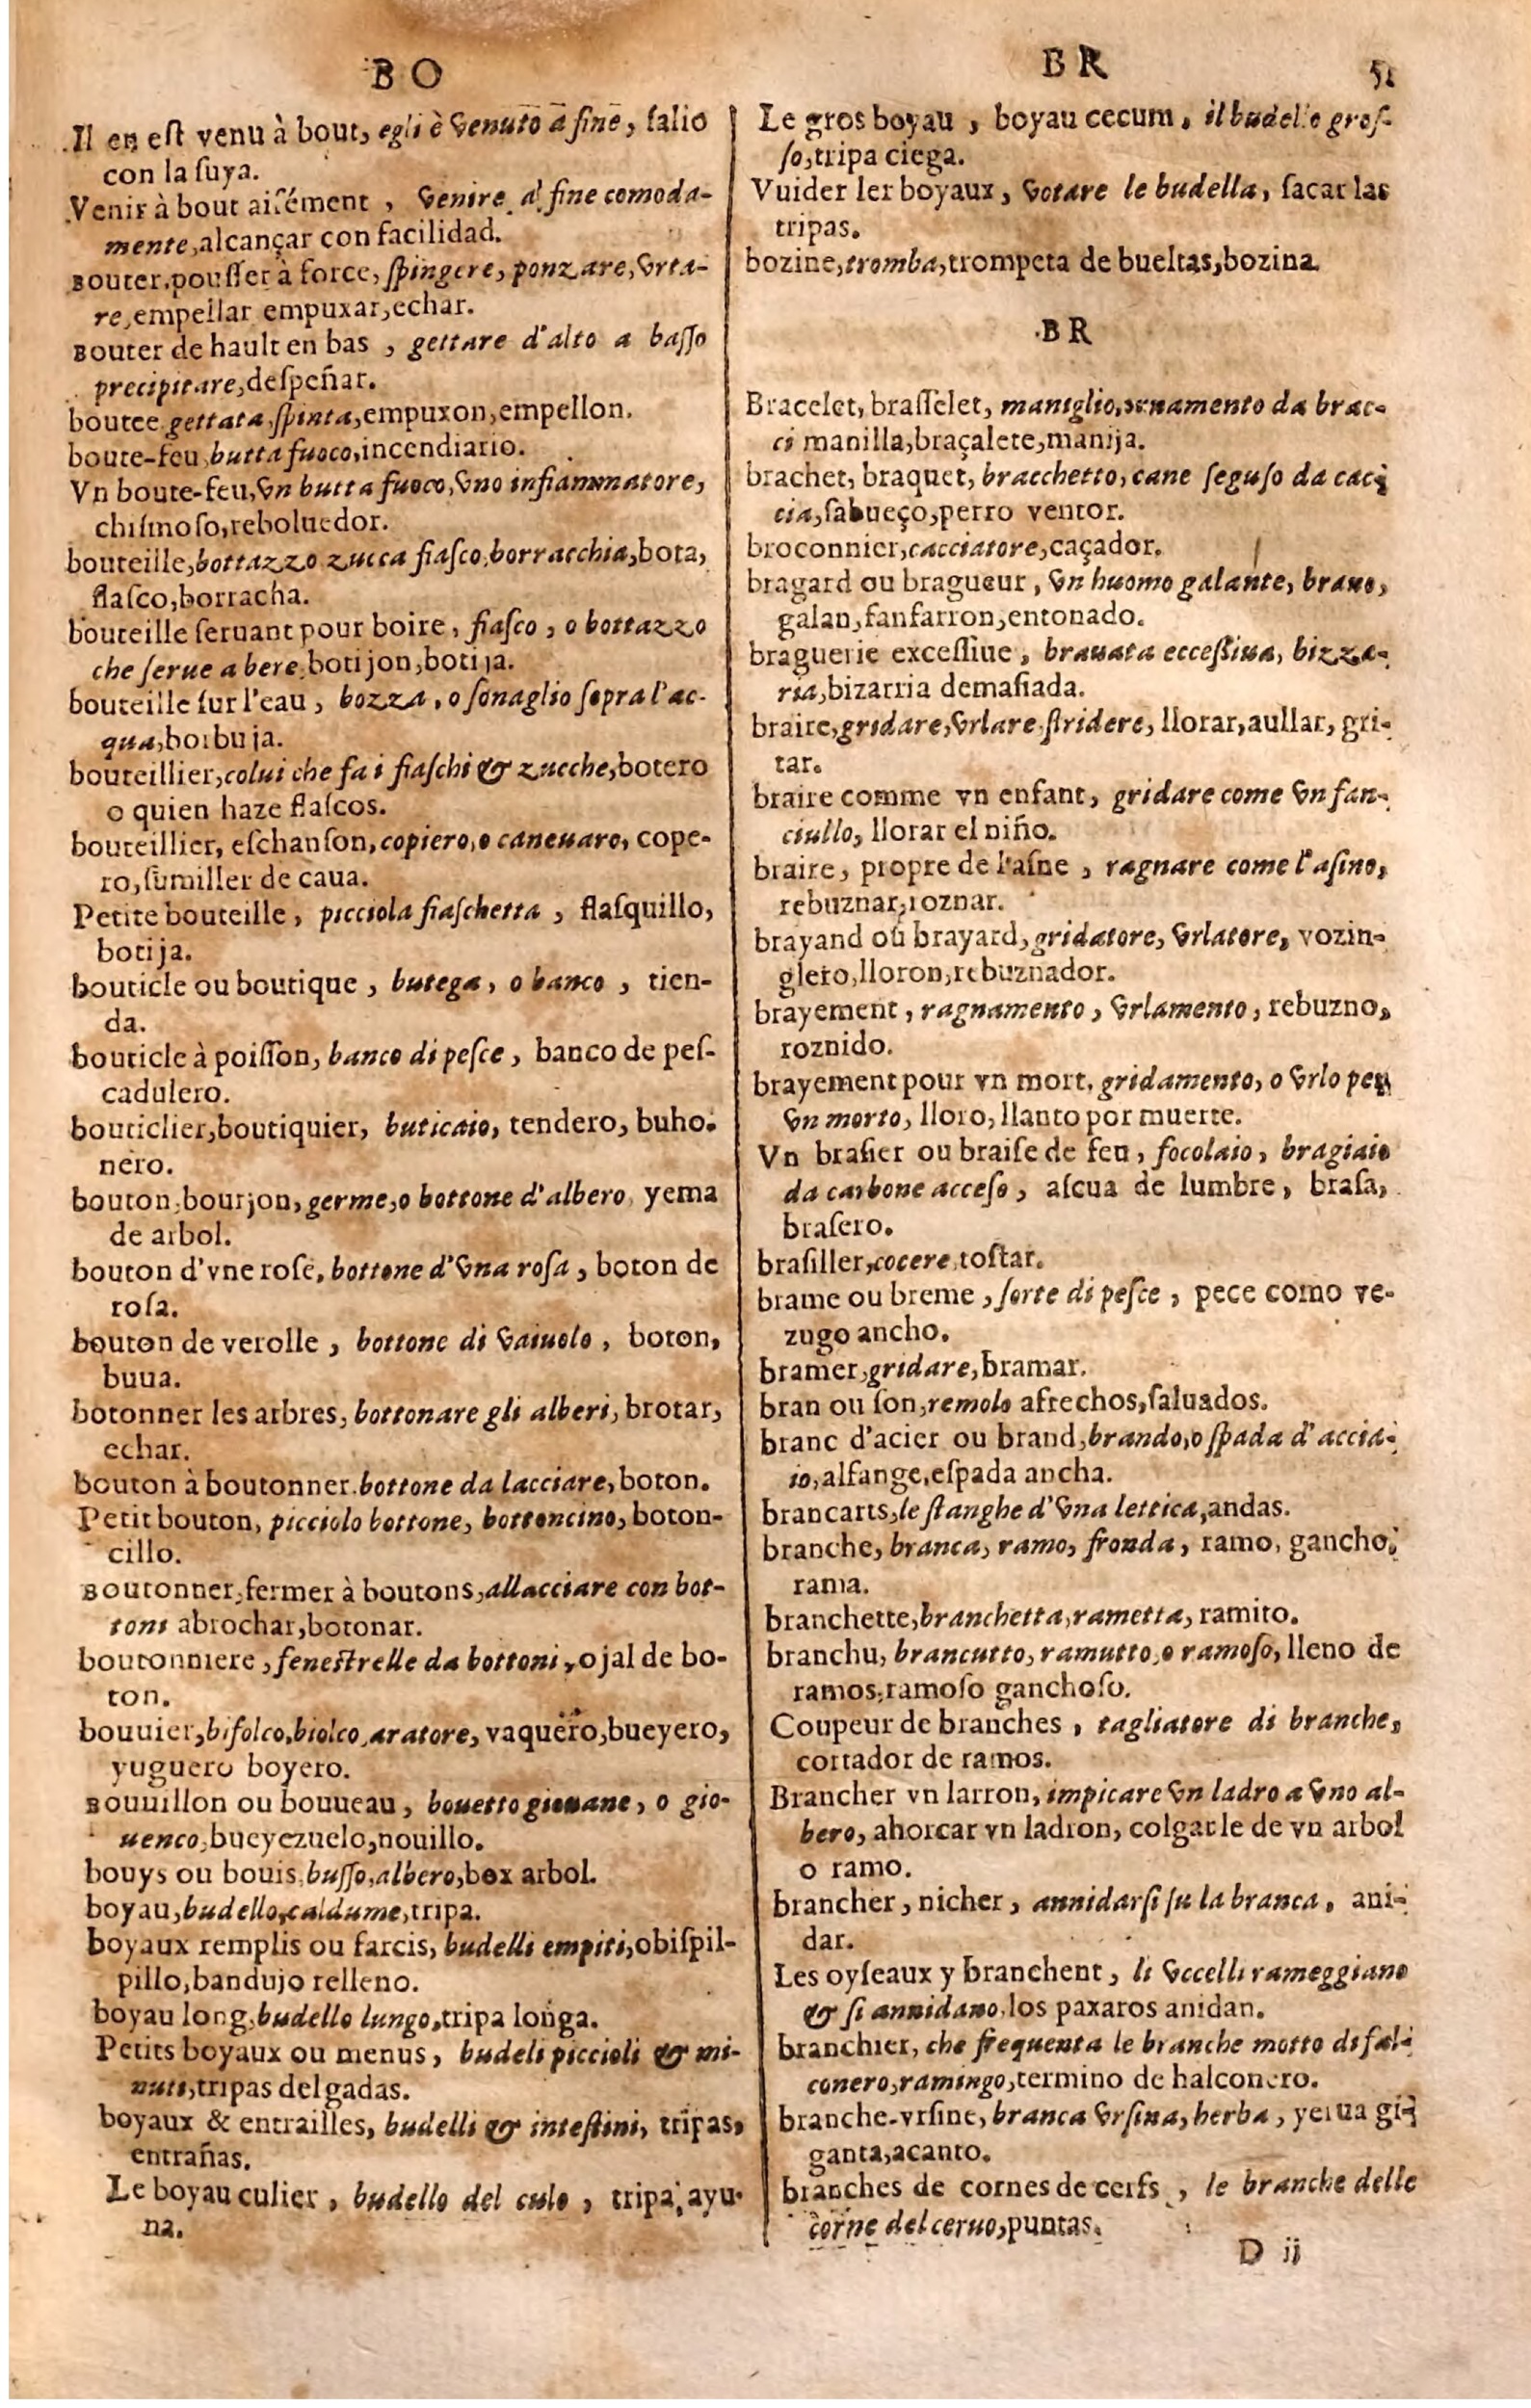 BO
Il en est venu à bout, egli è venuto a fine, salio
con la suya.
Venir à bout aisément, venire al fine comoda-
mente, alcançar con facilidad.
Bouter, pousser à force, spingere, ponzare, vrta-
re, empellar empuxar, echar.
Bouter de hault en bas, gettare d'alto a basso
precipitare, despeñar.
boutee gettata, spinta, empuxon, empellon.
boute-feu, butta fuoco, incendiario.
Vn boute-feu, vn butta fuoco, vno infiammatore,
chismoso, reboluedor.
bouteille, bottazzo zucca fiasco, borracchia, bota,
flasco, borracha.
bouteille seruant pour boire, fiasco, o bottazzo
che serue a bere, botijon, botija.
bouteille sur l'eau, bozza, o sonaglio sopra l'ac-
qua, borbuja.
bouteillier, colui che fa i fiaschi & zucche, botero
o quien haze flascos.
bouteillier, eschanson, copiero, o caneuaro, cope-
ro, sumiller de caua.
Petite bouteille, picciola fiaschetta, flasquillo,
botija.
bouticle ou boutique, butega, o banco, tien-
da.
bouticle à poisson, banco di pesce, banco de pes-
cadulero.
bouticlier, boutiquier, buticaio, tendero, buho-
nero.
bouton, bourjon, germe, o bottone d'albero, yema
de arbol.
bouton d'vne rose, bottone d'vna rosa, boton de
rosa.
bouton de verolle, bottone di vaiuolo, boton,
buua.
botonner les arbres, bottonare gli alberi, brotar,
echar.
bouton à boutonner, bottone da lacciare, boton.
Petit bouton, picciolo bottone, bottoncino, boton-
cillo.
Boutonner, fermer à boutons, allacciare con bot-
toni abrochar, botonar.
boutonniere, fenestrelle da bottoni, ojal de bo-
ton.
bouuier, bifolco, biolco, aratore, vaquero, bueyero,
yuguero boyero.
Bouuillon ou bouueau, bouetto giouane, o gio-
uenco, bueyezuelo, nouillo.
bouys ou bouis, busso, albero, box arbol.
boyau, budello, caldume, tripa.
boyaux remplis ou farcis, budelli empiti, obispil-
pillo, bandujo relleno.
boyau long, budello lungo, tripa longa.
Petits boyaux ou menus, budeli piccioli & mi-
nuti, tripas delgadas.
boyaux & entrailles, budelli & intestini, tripas,
entrañas.
Le boyau culier, budello del culo, tripa, ayu-
na.
BR 51
Le gros boyau, boyau cecum, il budello gros-
so, tripa ciega.
Vuider ler boyaux, votare le budella, sacar las
tripas.
bozine, tromba, trompeta de bueltas, bozina
BR
Bracelet, brasselet, maniglio, ornamento da brac-
ci manilla, braçalete, manija.
brachet, braquet, bracchetto, cane seguso da cac-
cia, sabueço, perro ventor.
broconnier, cacciatore, caçador.
bragard ou bragueur, vn huomo galante, brauo,
galan, fanfarron, entonado.
braguerie excessiue, brauata eccessiua, bizza-
ria, bizarria demasiada.
braire, gridare, vrlare, stridere, llorar, aullar, gri-
tar.
braire comme vn enfant, gridare come vn fan-
ciullo, llorar el niño.
braire, propre de l'asne, ragnare come l'asino,
rebuznar, roznar.
brayand ou brayard, gridatore, vrlatore, vozin-
glero, lloron, rebuznador.
brayement, ragnamento, vrlamento, rebuzno,
roznido.
brayement pour vn mort, gridamento, o vrlo per
vn morto, lloro, llanto por muerte.
Vn brasier ou braise de feu, focolaio, bragiaio
da carbone acceso, ascua de lumbre, brasa,
brasero.
brasiller, cocere, tostar.
brame ou breme, sorte di pesce, pece como ve-
zugo ancho.
bramer, gridare, bramar.
bran ou son, remolo afrechos, saluados.
branc d'acier ou brand, brando, o spada d'accia-
io, alfange, espada ancha.
brancarts, le stanghe d'vna lettica, andas.
branche, branca, ramo, fronda, ramo, gancho,
rama.
branchette, branchetta, rametta, ramito.
branchu, brancutto, ramutto, o ramoso, lleno de
ramos, ramoso ganchoso.
Coupeur de branches, tagliatore di branche,
cortador de ramos.
Brancher vn larron, impicare vn ladro a vno al-
bero, ahorcar vn ladron, colgarle de vn arbol
o ramo.
brancher, nicher, annidarsi su la branca, ani-
dar.
Les oyseaux y branchent, li vccelli rameggiano
& si annidano, los paxaros anidan.
branchier, che frequenta le branche motto di fal-
conero, ramingo, termino de halconero.
branche-vrsine, branca vrsina, herba, yerua gi-
ganta, acanto.
branches de cornes de cerfs, le branche delle
corne del ceruo, puntas.
D ij